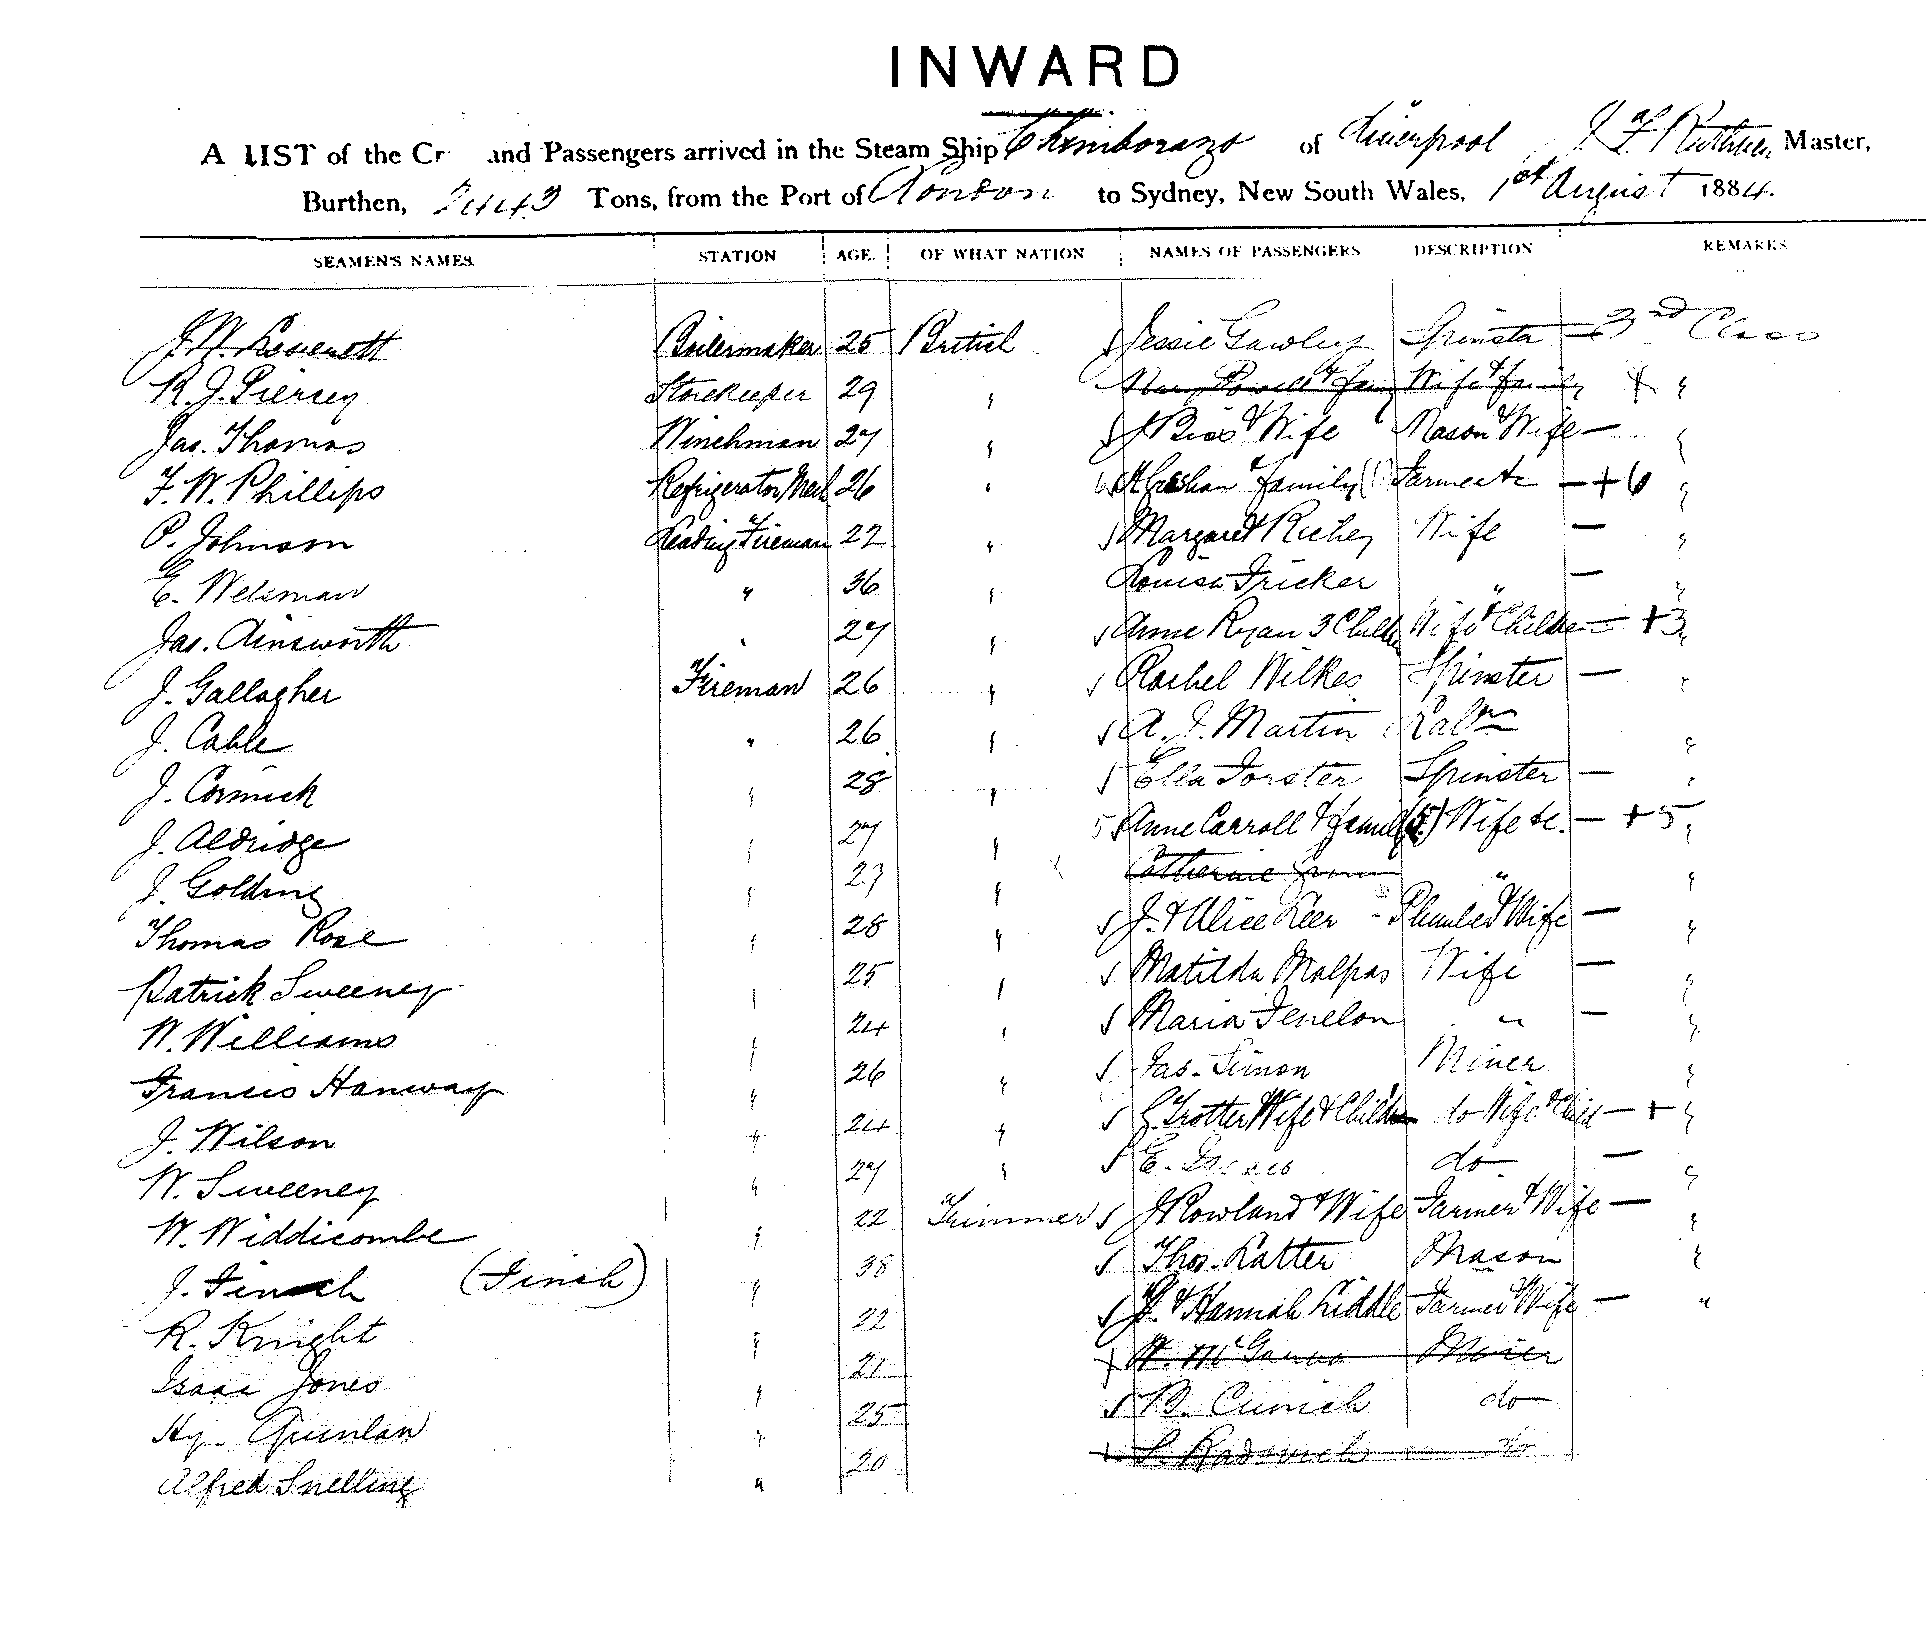 INWARD
A LIST of the Cr and Passengers arrived in the Steam Ship Chimborazo of Liverpool J F Ruthven Master,
Burthen, 2443 Tons, from the Port of London to Sydney, New South Wales, 1st August 1884.
SEAMEN'S NAMES. STATION AGE. OF WHAT NATION NAMES OF PASSENGERS DESCRIPTION REMARKS
J. W. Boilermaker 25 British Jessie Gawley Spinster — 3rd Class
R. J. Piersey Storekeeper 29 " Mary & family Wife & family "
Jas. Thomas Winchman 27 " J Biss & Wife Mason & Wife — "
F. W. Phillips Refrigerator Mech 26 " family Farmer &c — + 6 "
P. Johnson Leading Fireman 22 " Margaret Richey Wife — "
E. Welsman " 36 " Louisa Fricker " — "
Jas. Ainsworth " 27 " Anne Ryan 3 Childn Wife & Childn — + 3 "
J. Gallagher Fireman 26 " Rachel Wilkes Spinster — "
J. Cable " 26 " A. J. Martin Labr "
J. Cormick " 28 " Ella Forster Spinster — "
J. Aldridge " 27 " 5 Anne Carroll & family (5) Wife &c. — + 5 "
J. Golding " 27 " Catherine " "
Thomas Rose " 28 " J. & Alice Keer Plumber & Wife — "
Patrick Sweeney " 25 " Matilda Malpas Wife — "
W. Williams " 24 " Maria Fenelon " — "
Francis Hanway " 26 " Jas. Simon Miner "
J. Wilson " 24 " G Trotter Wife & Child do Wife & Child — + "
W. Sweeney " 27 " E. do — "
W. Widdicombe " 22 Trimmer J Rowland & Wife Farmer & Wife — "
J. Finch (Finch) " 38 Thos. Latter Mason "
R. Knight " 22 J. & Hannah Liddle Farmer & Wife — "
Isaac Jones " 21 W. Mc Miner
Hy. Quinlan " 25 B. Cunich do
Alfred Snelling " 20 S. Radovich do